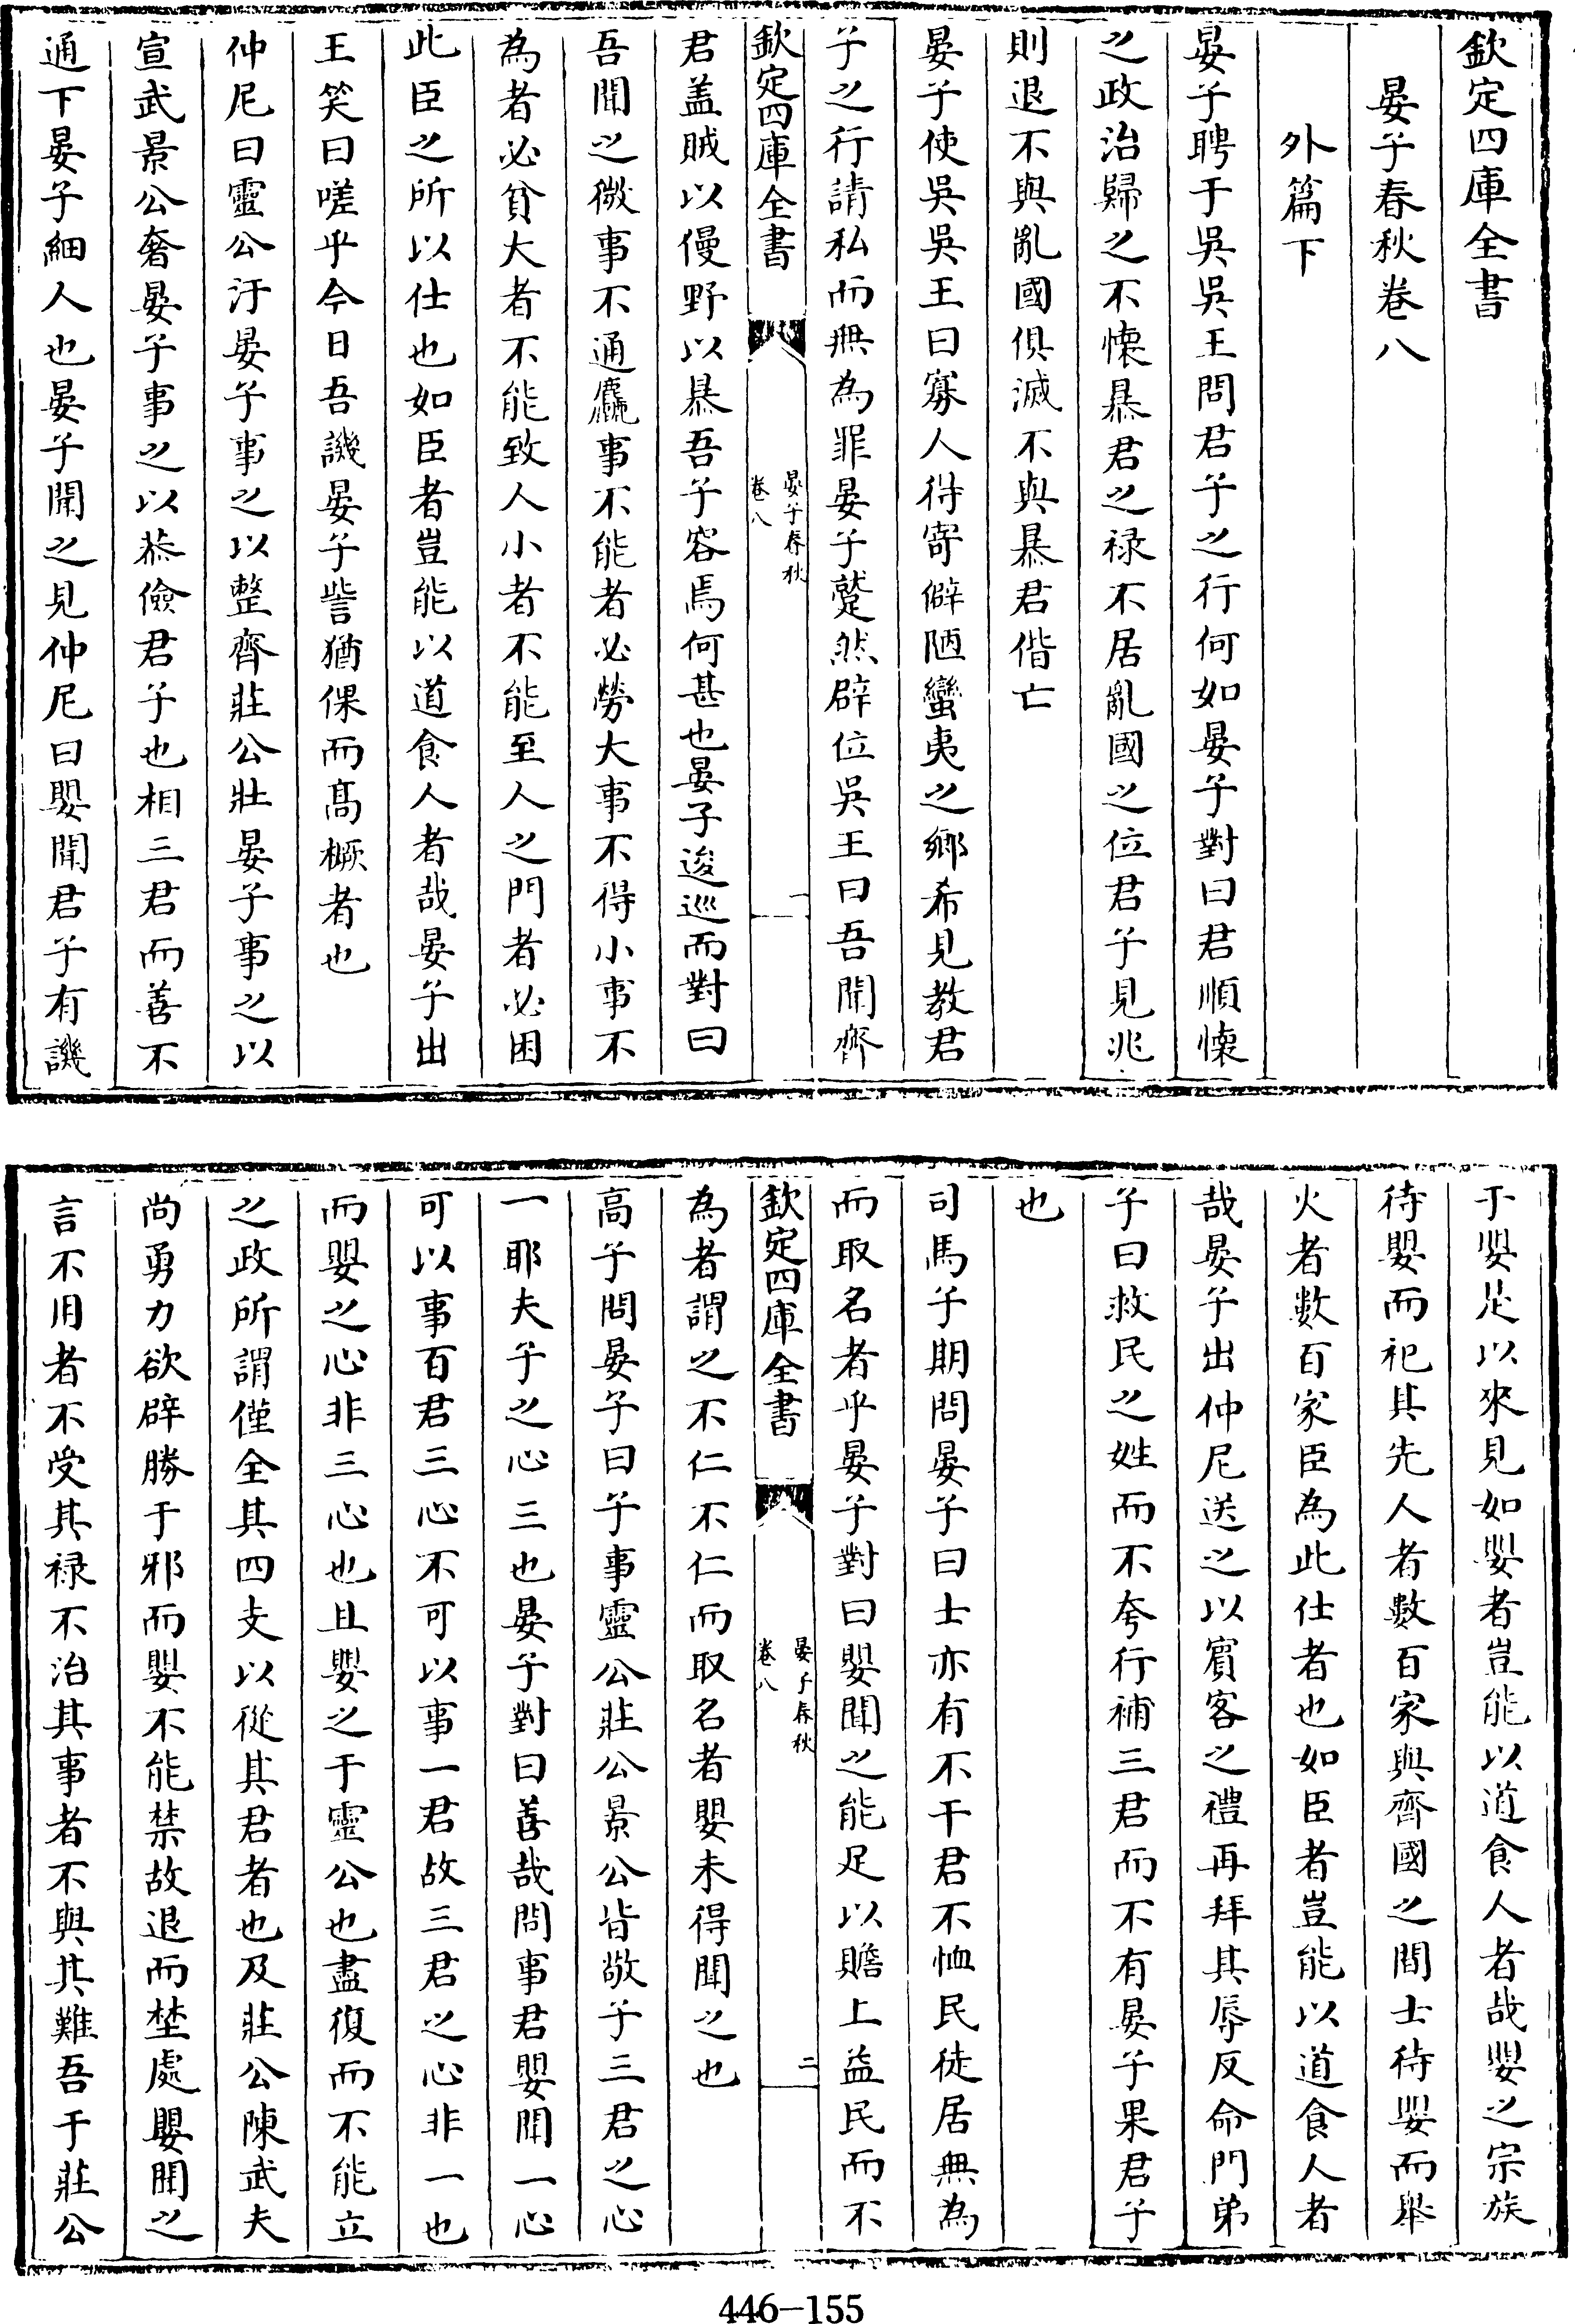 欽定四庫全書
晏子春秋卷八
外篇下
晏子聘于吳吳王問君子之行何如晏子對曰君順懷
之政治歸之不懷暴君之祿不居亂國之位君子見兆
則退不與亂國俱滅不與暴君偕亡
晏子使吳吳王曰寡人得寄僻陋蠻夷之鄉希見教君
子之行請私而無為罪晏子蹵然辟位吳王曰吾聞齊
欽定四庫全書
晏子春秋
卷八
一
君蓋賊以慢野以暴吾子容焉何甚也晏子逡巡而對曰
吾聞之微事不通麤事不能者必勞大事不得小事不
為者必貧大者不能致人小者不能至人之門者必困
此臣之所以仕也如臣者豈能以道食人者哉晏子出
王笑曰嗟乎今日吾譏晏子訾猶倮而高橛者也
仲尼曰靈公汙晏子事之以整齊莊公壯晏子事之以
宣武景公奢晏子事之以恭儉君子也相三君而善不
通下晏子細人也晏子聞之見仲尼曰嬰聞君子有譏
于嬰是以來見如嬰者豈能以道食人者哉嬰之宗族
待嬰而祀其先人者數百家與齊國之間士待嬰而舉
火者數百家臣為此仕者也如臣者豈能以道食人者
哉晏子出仲尼送之以賓客之禮再拜其辱反命門弟
子曰救民之姓而不夸行補三君而不有晏子果君子
也
司馬子期問晏子曰士亦有不干君不恤民徒居無為
而取名者乎晏子對曰嬰聞之能足以贍上益民而不
欽定四庫全書
晏子春秋
卷八
二
為者謂之不仁不仁而取名者嬰未得聞之也
高子問晏子曰子事靈公莊公景公皆敬子三君之心
一耶夫子之心三也晏子對曰善哉問事君嬰聞一心
可以事百君三心不可以事一君故三君之心非一也
而嬰之心非三心也且嬰之于靈公也盡復而不能立
之政所謂僅全其四支以從其君者也及莊公陳武夫
尚勇力欲辟勝于邪而嬰不能禁故退而埜處嬰聞之
言不用者不受其祿不治其事者不與其難吾于莊公
446-155